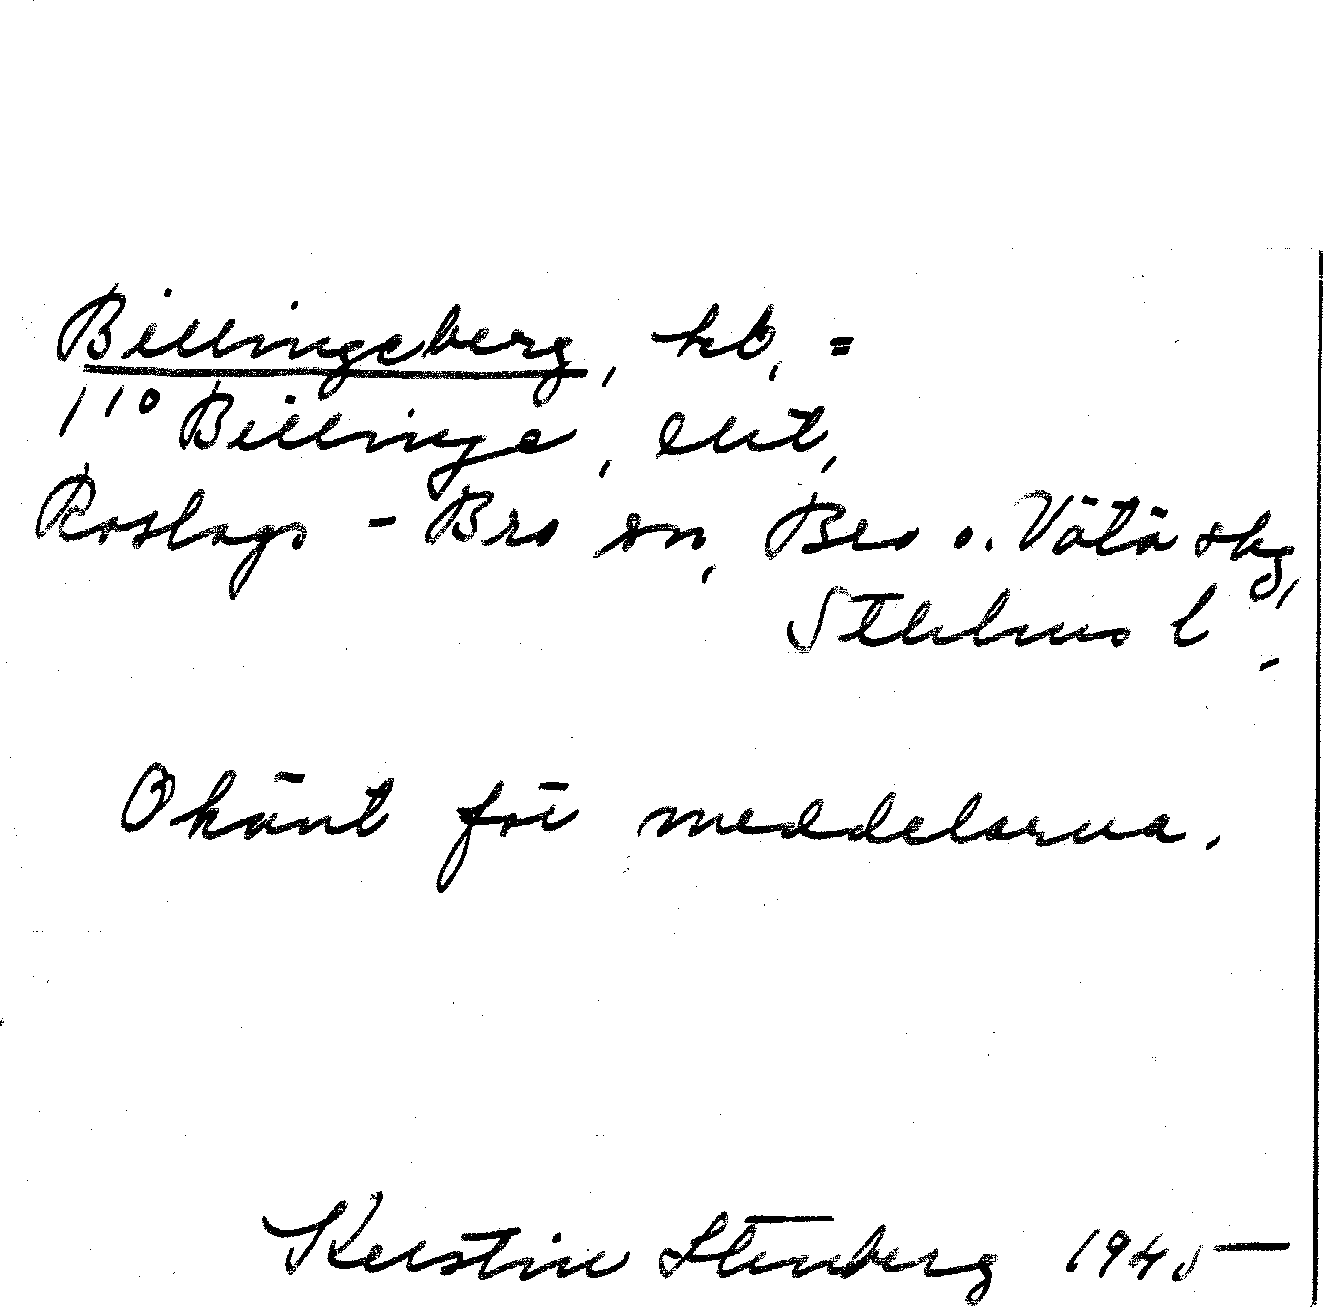 Billingeberg, hb, =
1/10 Billinge, enl.t,
Roslags-Bro sn, Bro o. Vätö skg,
Sthlms l.
Okänt för meddelarna.
Kerstin Stenberg 1945